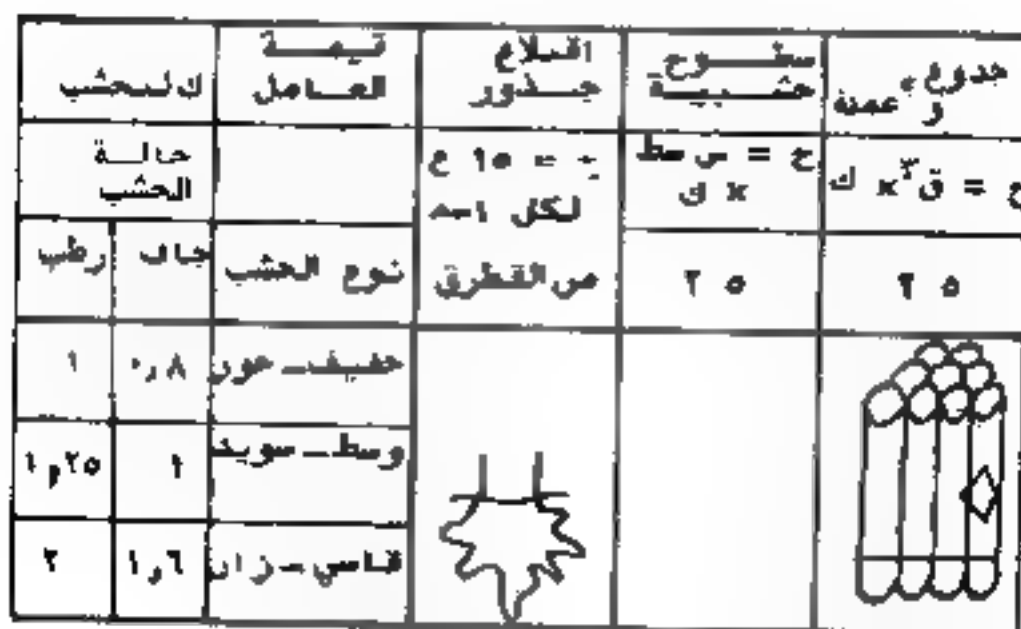 جذوع و أعمدة
سطوح خشبية
اقتلاع جذور
قيمة العامل
ك للخشب
ح = ق٣ x ك
٢ ٥
ح = س سط
x ك
٢ ٥
= ١٥ ع
لكل ١سم
من القطر ق
حالة الخشب
نوع الخشب
جاف
رطب
خفيف - حور
٠,٨
١
وسط - سويد
١
١,٢٥
قاسي - زان
١,٦
٢